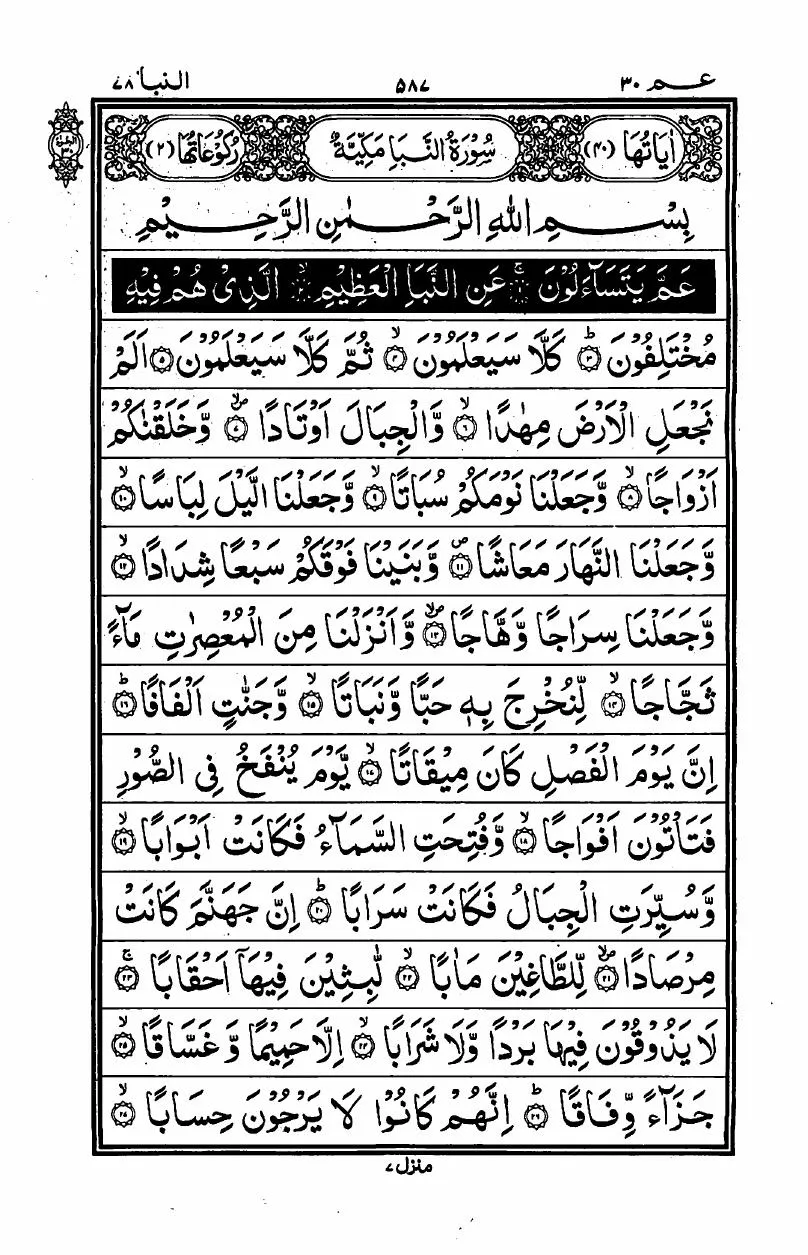 عـم ٣٠
٥٨٧
النبا ٧٨
اٰيَاتُهَا (٤٠)
سُوْرَةُ النَّبَاِ مَكِّيَّةٌ
رُكُوْعَاتُهَا (٢)
بِسْمِ اللّٰهِ الرَّحْمٰنِ الرَّحِيْمِ
عَمَّ يَتَسَآءَلُوْنَ ۚ‏ ۝١ عَنِ النَّبَاِ الْعَظِيْمِ ۙ‏ ۝٢ الَّذِىْ هُمْ فِيْهِ
مُخْتَلِفُوْنَ ؕ‏ ۝٣ كَلَّا سَيَعْلَمُوْنَ ۙ‏ ۝٤ ثُمَّ كَلَّا سَيَعْلَمُوْنَ ۝٥ اَلَمْ
نَجْعَلِ الْاَرْضَ مِهٰدًا ۙ‏ ۝٦ وَّالْجِبَالَ اَوْتَادًا ۪ۙ‏ ۝٧ وَّخَلَقْنٰكُمْ
اَزْوَاجًا ۙ‏ ۝٨ وَّجَعَلْنَا نَوْمَكُمْ سُبَاتًا ۙ‏ ۝٩ وَّجَعَلْنَا الَّيْلَ لِبَاسًا ۙ‏ ۝١٠
وَّجَعَلْنَا النَّهَارَ مَعَاشًا ۪‏ ۝١١ وَّبَنَيْنَا فَوْقَكُمْ سَبْعًا شِدَادًا ۙ‏ ۝١٢
وَّجَعَلْنَا سِرَاجًا وَّهَّاجًا ۪ۙ‏ ۝١٣ وَّاَنْزَلْنَا مِنَ الْمُعْصِرٰتِ مَآءً
ثَجَّاجًا ۙ‏ ۝١٤ لِّنُخْرِجَ بِهٖ حَبًّا وَّنَبَاتًا ۙ‏ ۝١٥ وَّجَنّٰتٍ اَلْفَافًا ؕ‏ ۝١٦
اِنَّ يَوْمَ الْفَصْلِ كَانَ مِيْقَاتًا ۙ‏ ۝١٧ يَّوْمَ يُنْفَخُ فِى الصُّوْرِ
فَتَاْتُوْنَ اَفْوَاجًا ۙ‏ ۝١٨ وَّفُتِحَتِ السَّمَآءُ فَكَانَتْ اَبْوَابًا ۙ‏ ۝١٩
وَّسُيِّرَتِ الْجِبَالُ فَكَانَتْ سَرَابًا ؕ‏ ۝٢٠ اِنَّ جَهَنَّمَ كَانَتْ
مِرْصَادًا ۪ۙ‏ ۝٢١ لِّلطَّاغِيْنَ مَاٰبًا ۙ‏ ۝٢٢ لّٰبِثِيْنَ فِيْهَآ اَحْقَابًا ۚ‏ ۝٢٣
لَا يَذُوْقُوْنَ فِيْهَا بَرْدًا وَّلَا شَرَابًا ۙ‏ ۝٢٤ اِلَّا حَمِيْمًا وَّغَسَّاقًا ۙ‏ ۝٢٥
جَزَآءً وِّفَاقًا ؕ‏ ۝٢٦ اِنَّهُمْ كَانُوْا لَا يَرْجُوْنَ حِسَابًا ۙ‏ ۝٢٧
منزل ٧